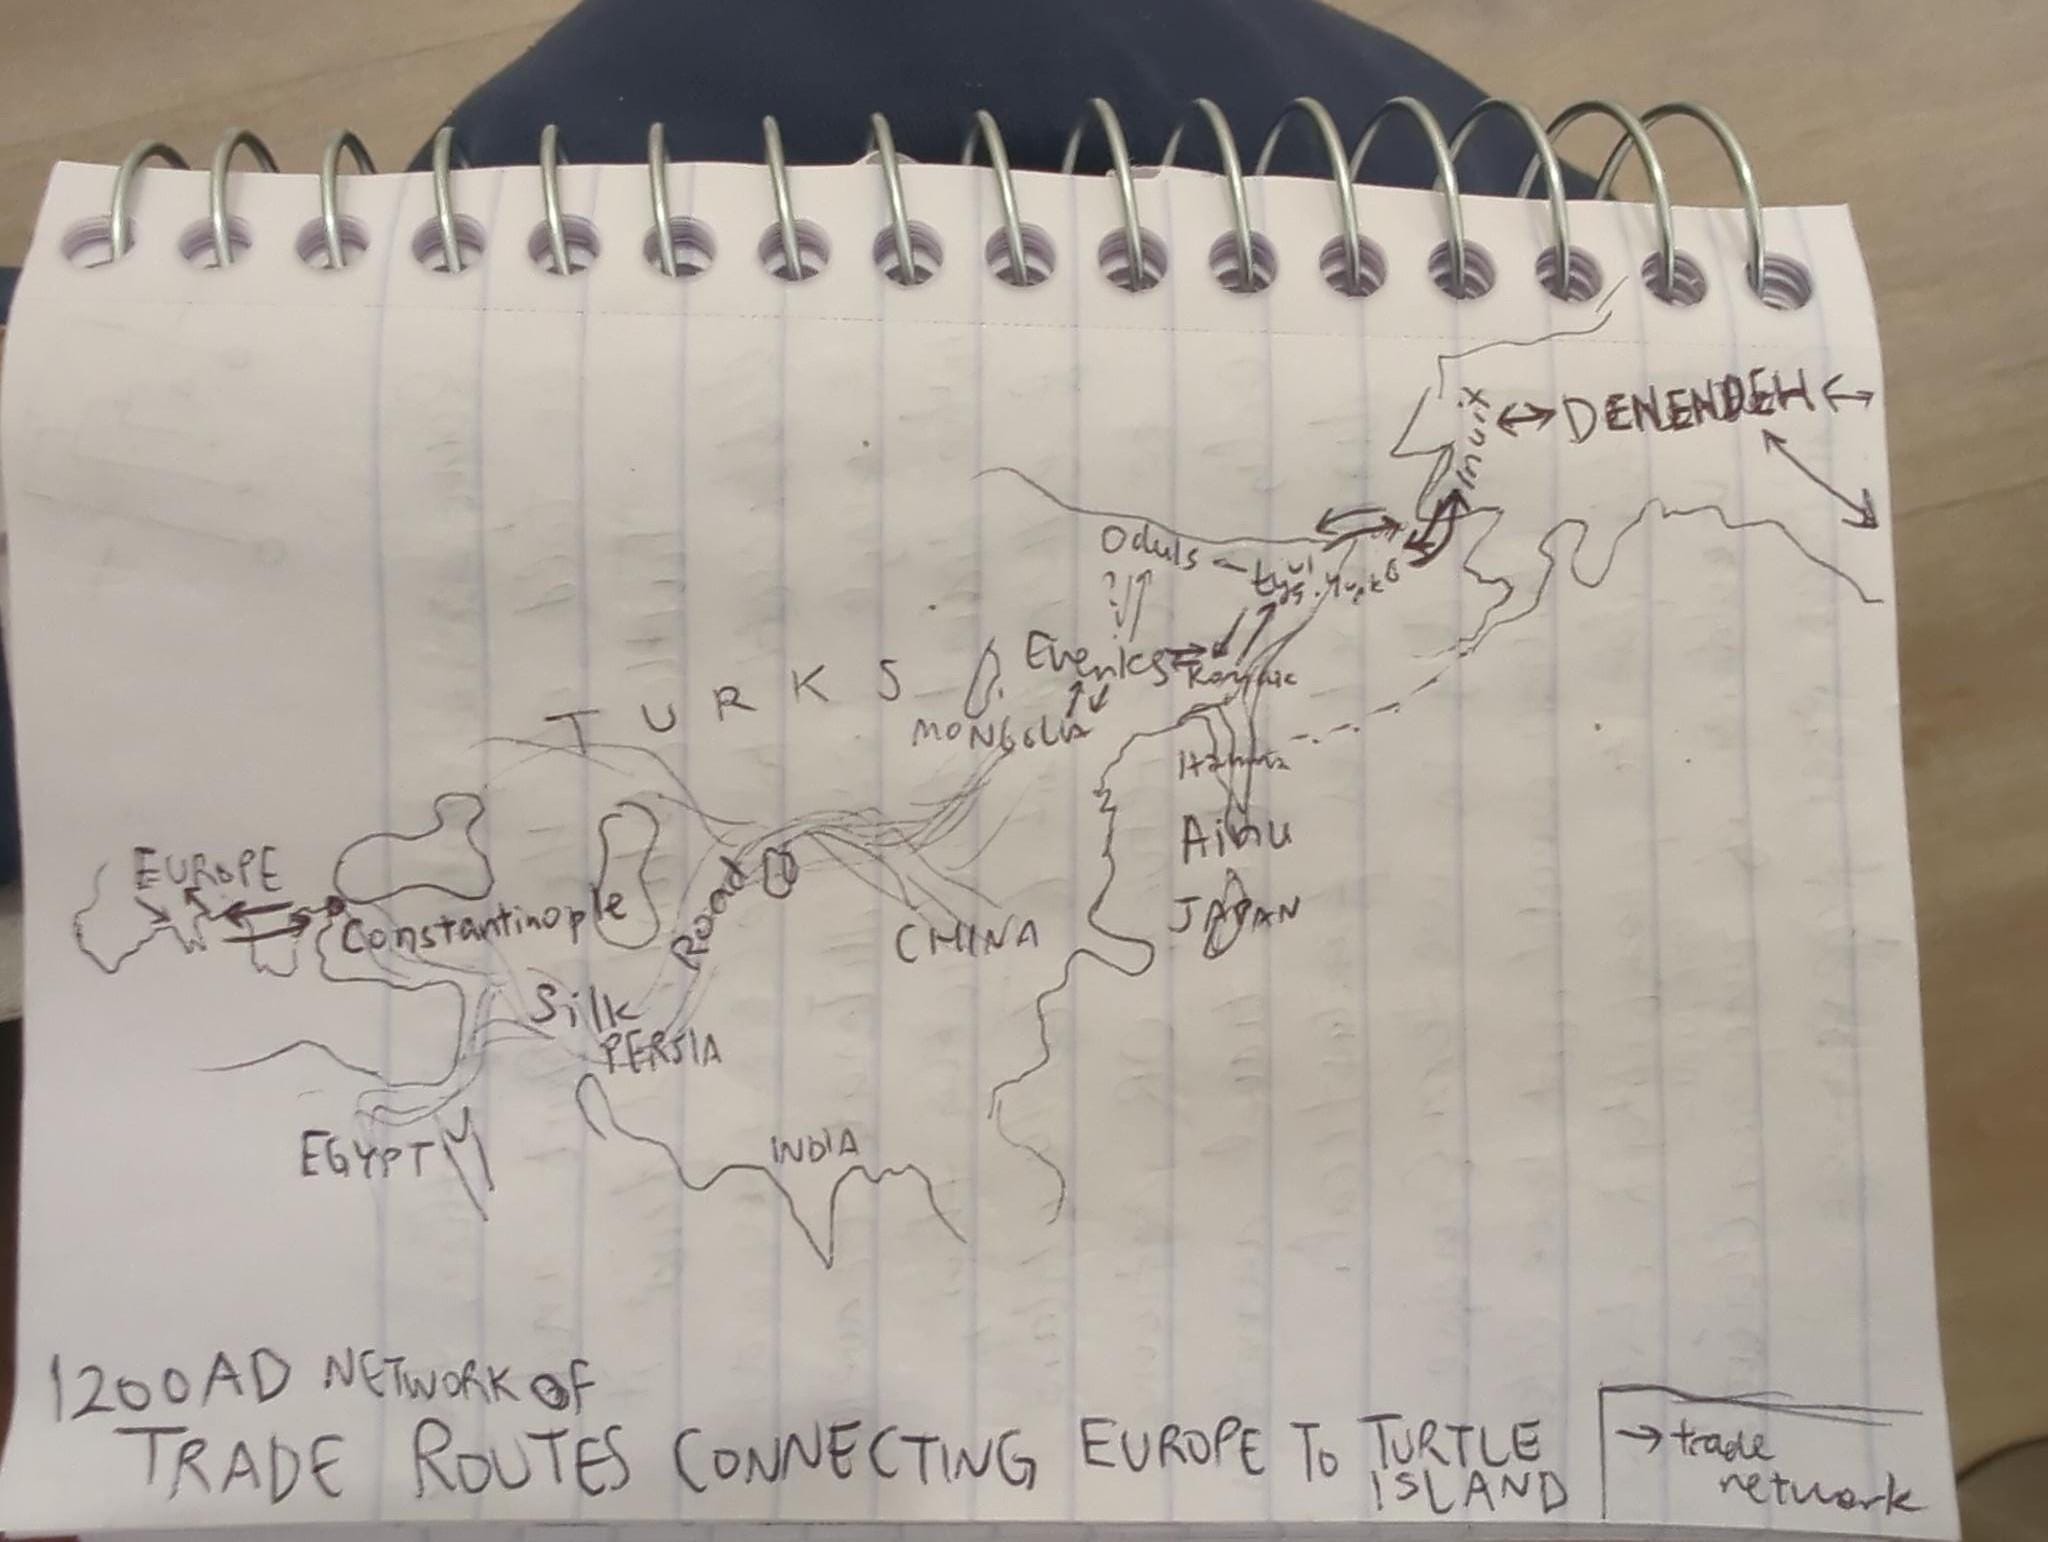 Inuix
DENENDEH
Oduls
?
Evenks
TURKS
MONGOLIA
Ainu
EUROPE
Constantinople
Road
CHINA
JAPAN
Silk
PERSIA
EGYPT
INDIA
1200AD NETWORK OF
TRADE ROUTES CONNECTING EUROPE TO TURTLE
ISLAND
→ trade
network